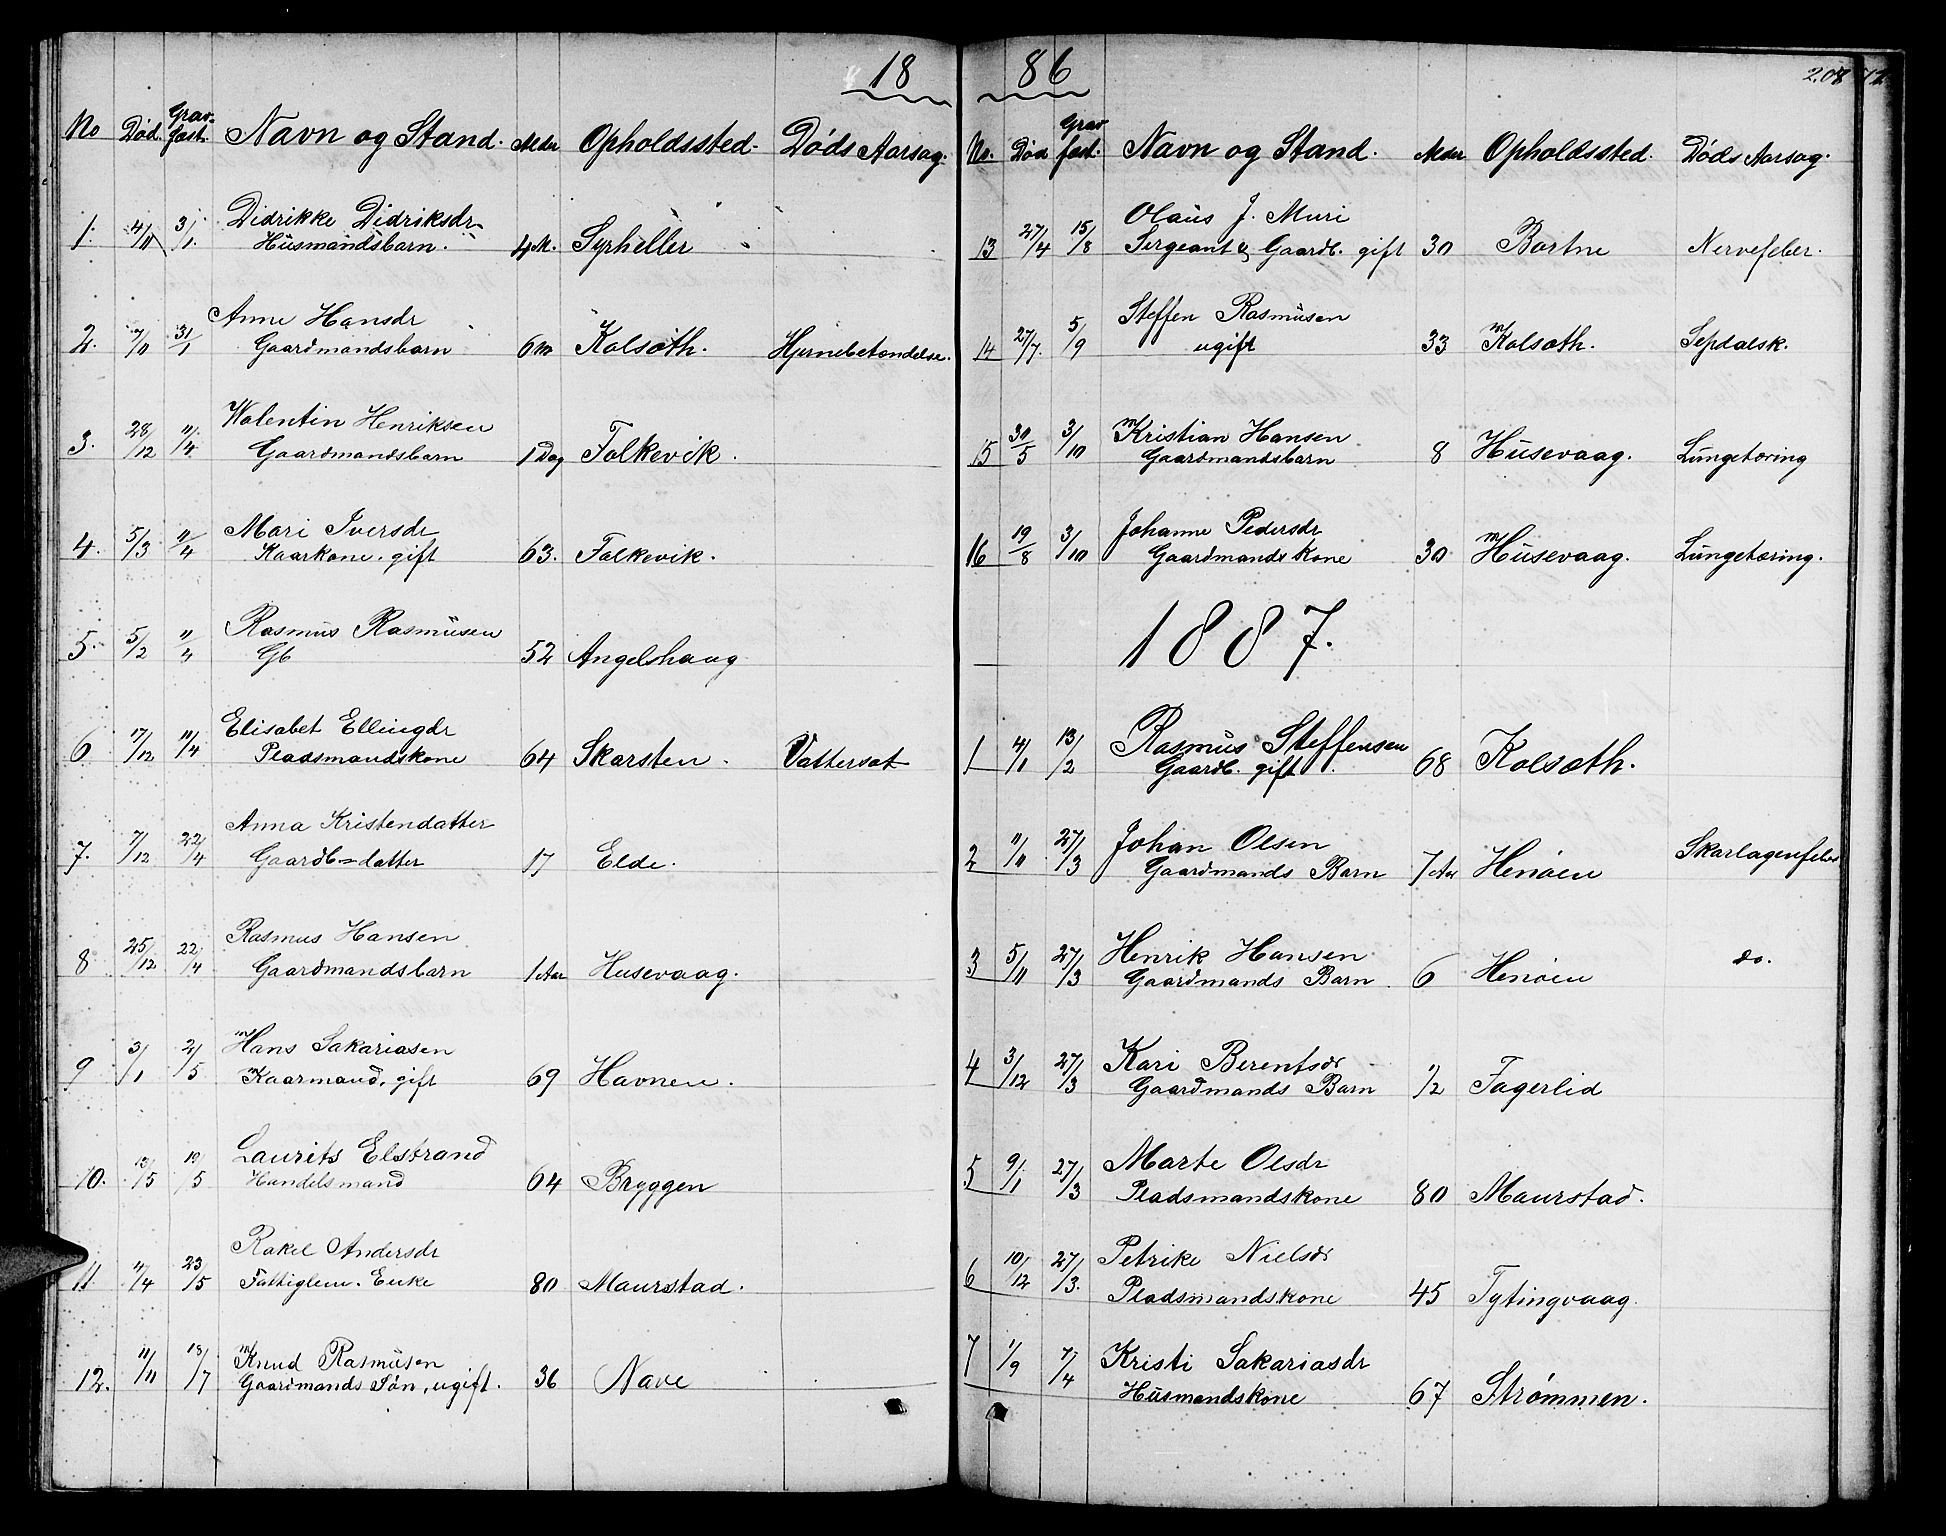 18 86
208
No Død Grav-fæst. Navn og Stand. Alder Opholdssted. Døds Aarsag.
1. 4/11 3/1. Didrikke Didriksdr.
Husmandsbarn. 4 M. Syrheller
2. 7/11 31/1 Anne Hansdr
Gaardmandsbarn 6 m Kolsæth. Hjernebetændelse.
3. 28/12 11/4 Walentin Henriksen
Gaardmandsbarn 1 Dag Folkevik.
4. 5/3 11/4 Mari Iversdr
Kaarkone. gift 63. Folkevik.
5. 5/2 11/4 Rasmus Rasmusen
Gb 52 Angelshaug
6 17/12 11/4 Elisabet Ellingdr
Pladsmandskone 64 Skarsten. Vattersot
7. 7/12 22/4 Anna Kristendatter
Gaardb=datter 17 Elde.
8 25/12 22/4 Rasmus Hansen
Gaardmandsbarn 1 Aar Husevaag.
9 3/1 2/5 Hans Sakariasen
Kaarmand, gift 69 Havnen.
10. 13/5 19/5 Laurits Elstrand
Handelsmand 64 Bryggen
11 11/4 23/5 Rakel Andersdr
Fattiglem. Enke 80 Maurstad.
12. 11/11 18/7 Knud Rasmusen
Gaardmands Søn, ugift. 36 Nave
No. Død Grav fæst. Navn og Stand. Alder Opholdssted. Døds Aarsag.
13 27/4 15/8 Olaus J. Muri
Sergeant og Gaardb. gift 30 Bortne Nervefeber.
14 27/7. 5/9 Steffen Rasmusen
ugift 33 Kolsæth. Sepdalsk.
15 30/5 3/10 Kristian Hansen
Gaardmandsbarn 8 Husevaag. Lungetæring
16 19/8 3/10 Johanne Pedersdr
Gaardmands Kone 30 Husevaag. Lungetæring.
1887.
1 4/1 13/2 Rasmus Steffensen
Gaardb. gift. 68 Kolsæth.
2 11/11 27/3 Johan Olsen
Gaardmands Barn 7 Aar Henøen Skarlagenfeber
3 5/11 27/3 Henrik Hansen
Gaardmands Barn. 6 Henøen do.
4 3/12 27/3 Kari Berentsdr
Gaardmands Barn 1/2 Fagerlid
5 9/1 27/3 Marte Olsdr
Pladsmandskone 80 Maurstad.
6 10/12 27/3. Petrike Nielsdr
Pladsmandskone 45 Tytingvaag.
7 1/9 7/4 Kristi Sakariasdr
Husmandskone 67 Strømmen.